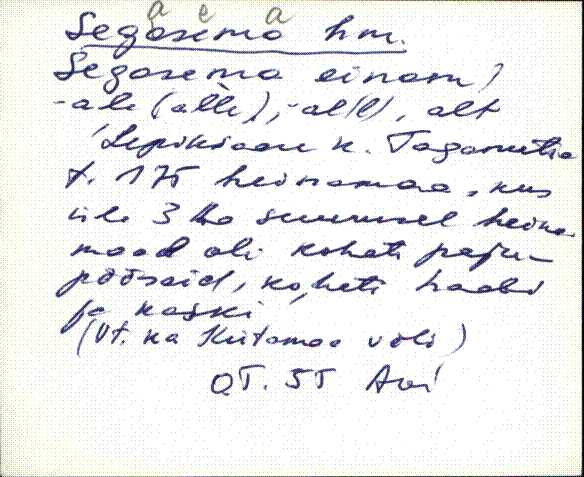 a e a
Segasema hm.
Segasema einam,
-ale (alle), -al(l), alt
Lepiku k. Tagametsa
t. 175 heinamaa, kus
üle 3 ha suurusel heina-
maal oli kohati paju-
põõsaid, kohati haabu
ja kaski
(Vt. ka Kiitamaa väli)